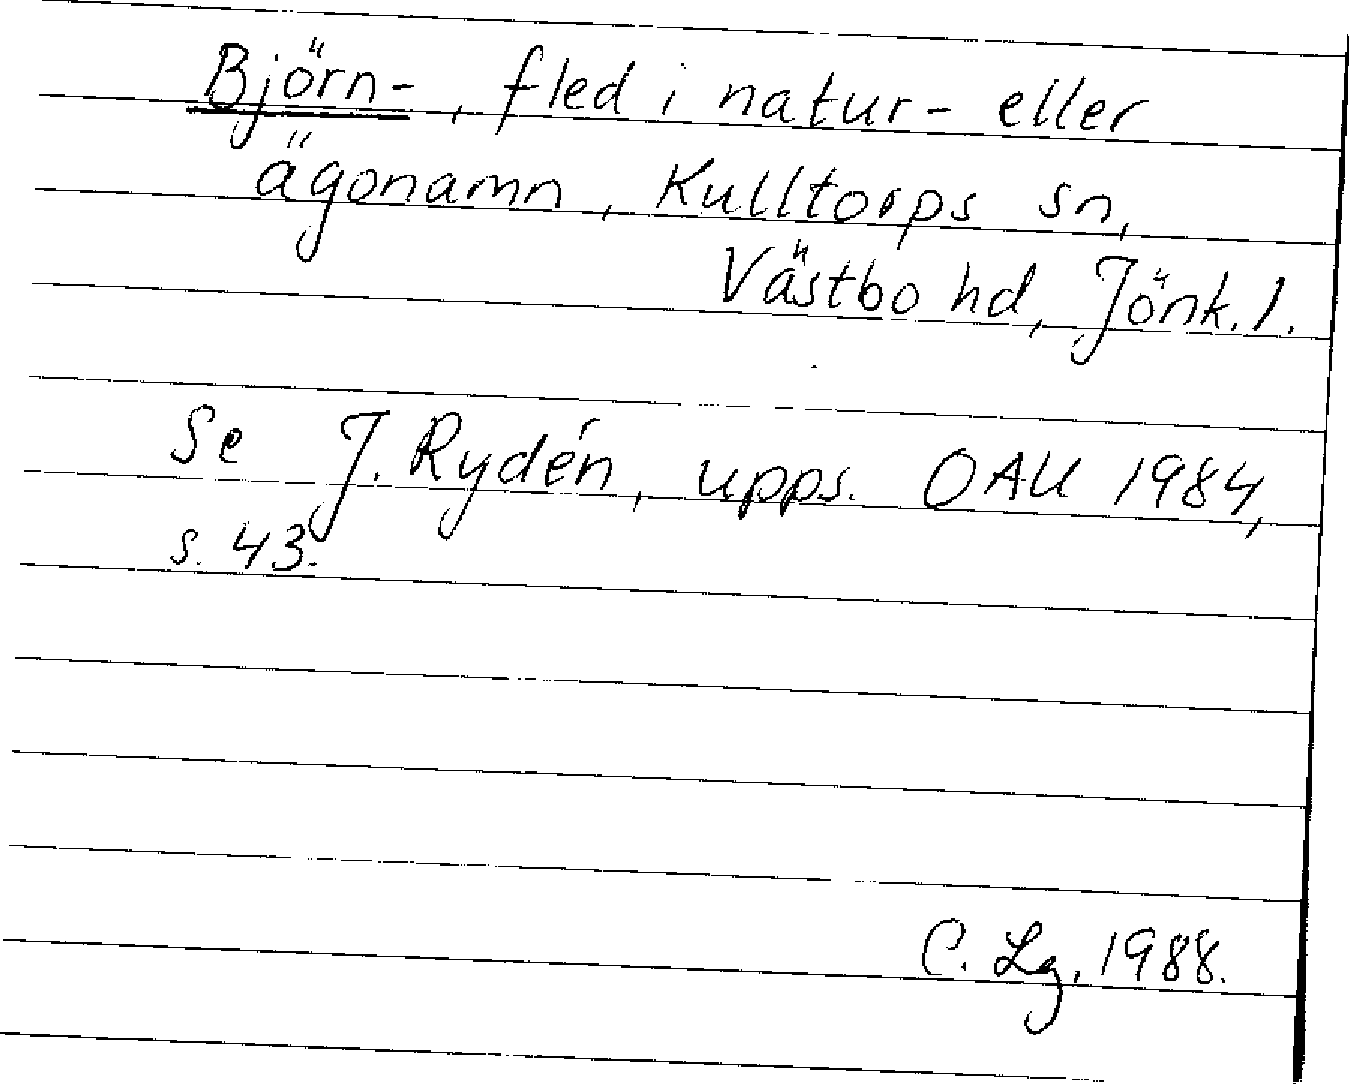 Björn-, fled i natur- eller
ägonamn, Kulltorps sn,
Västbo hd, Jönk. l.
Se J. Rydén, upps. OAU 1984,
s. 43.
C. Lg. 1988.